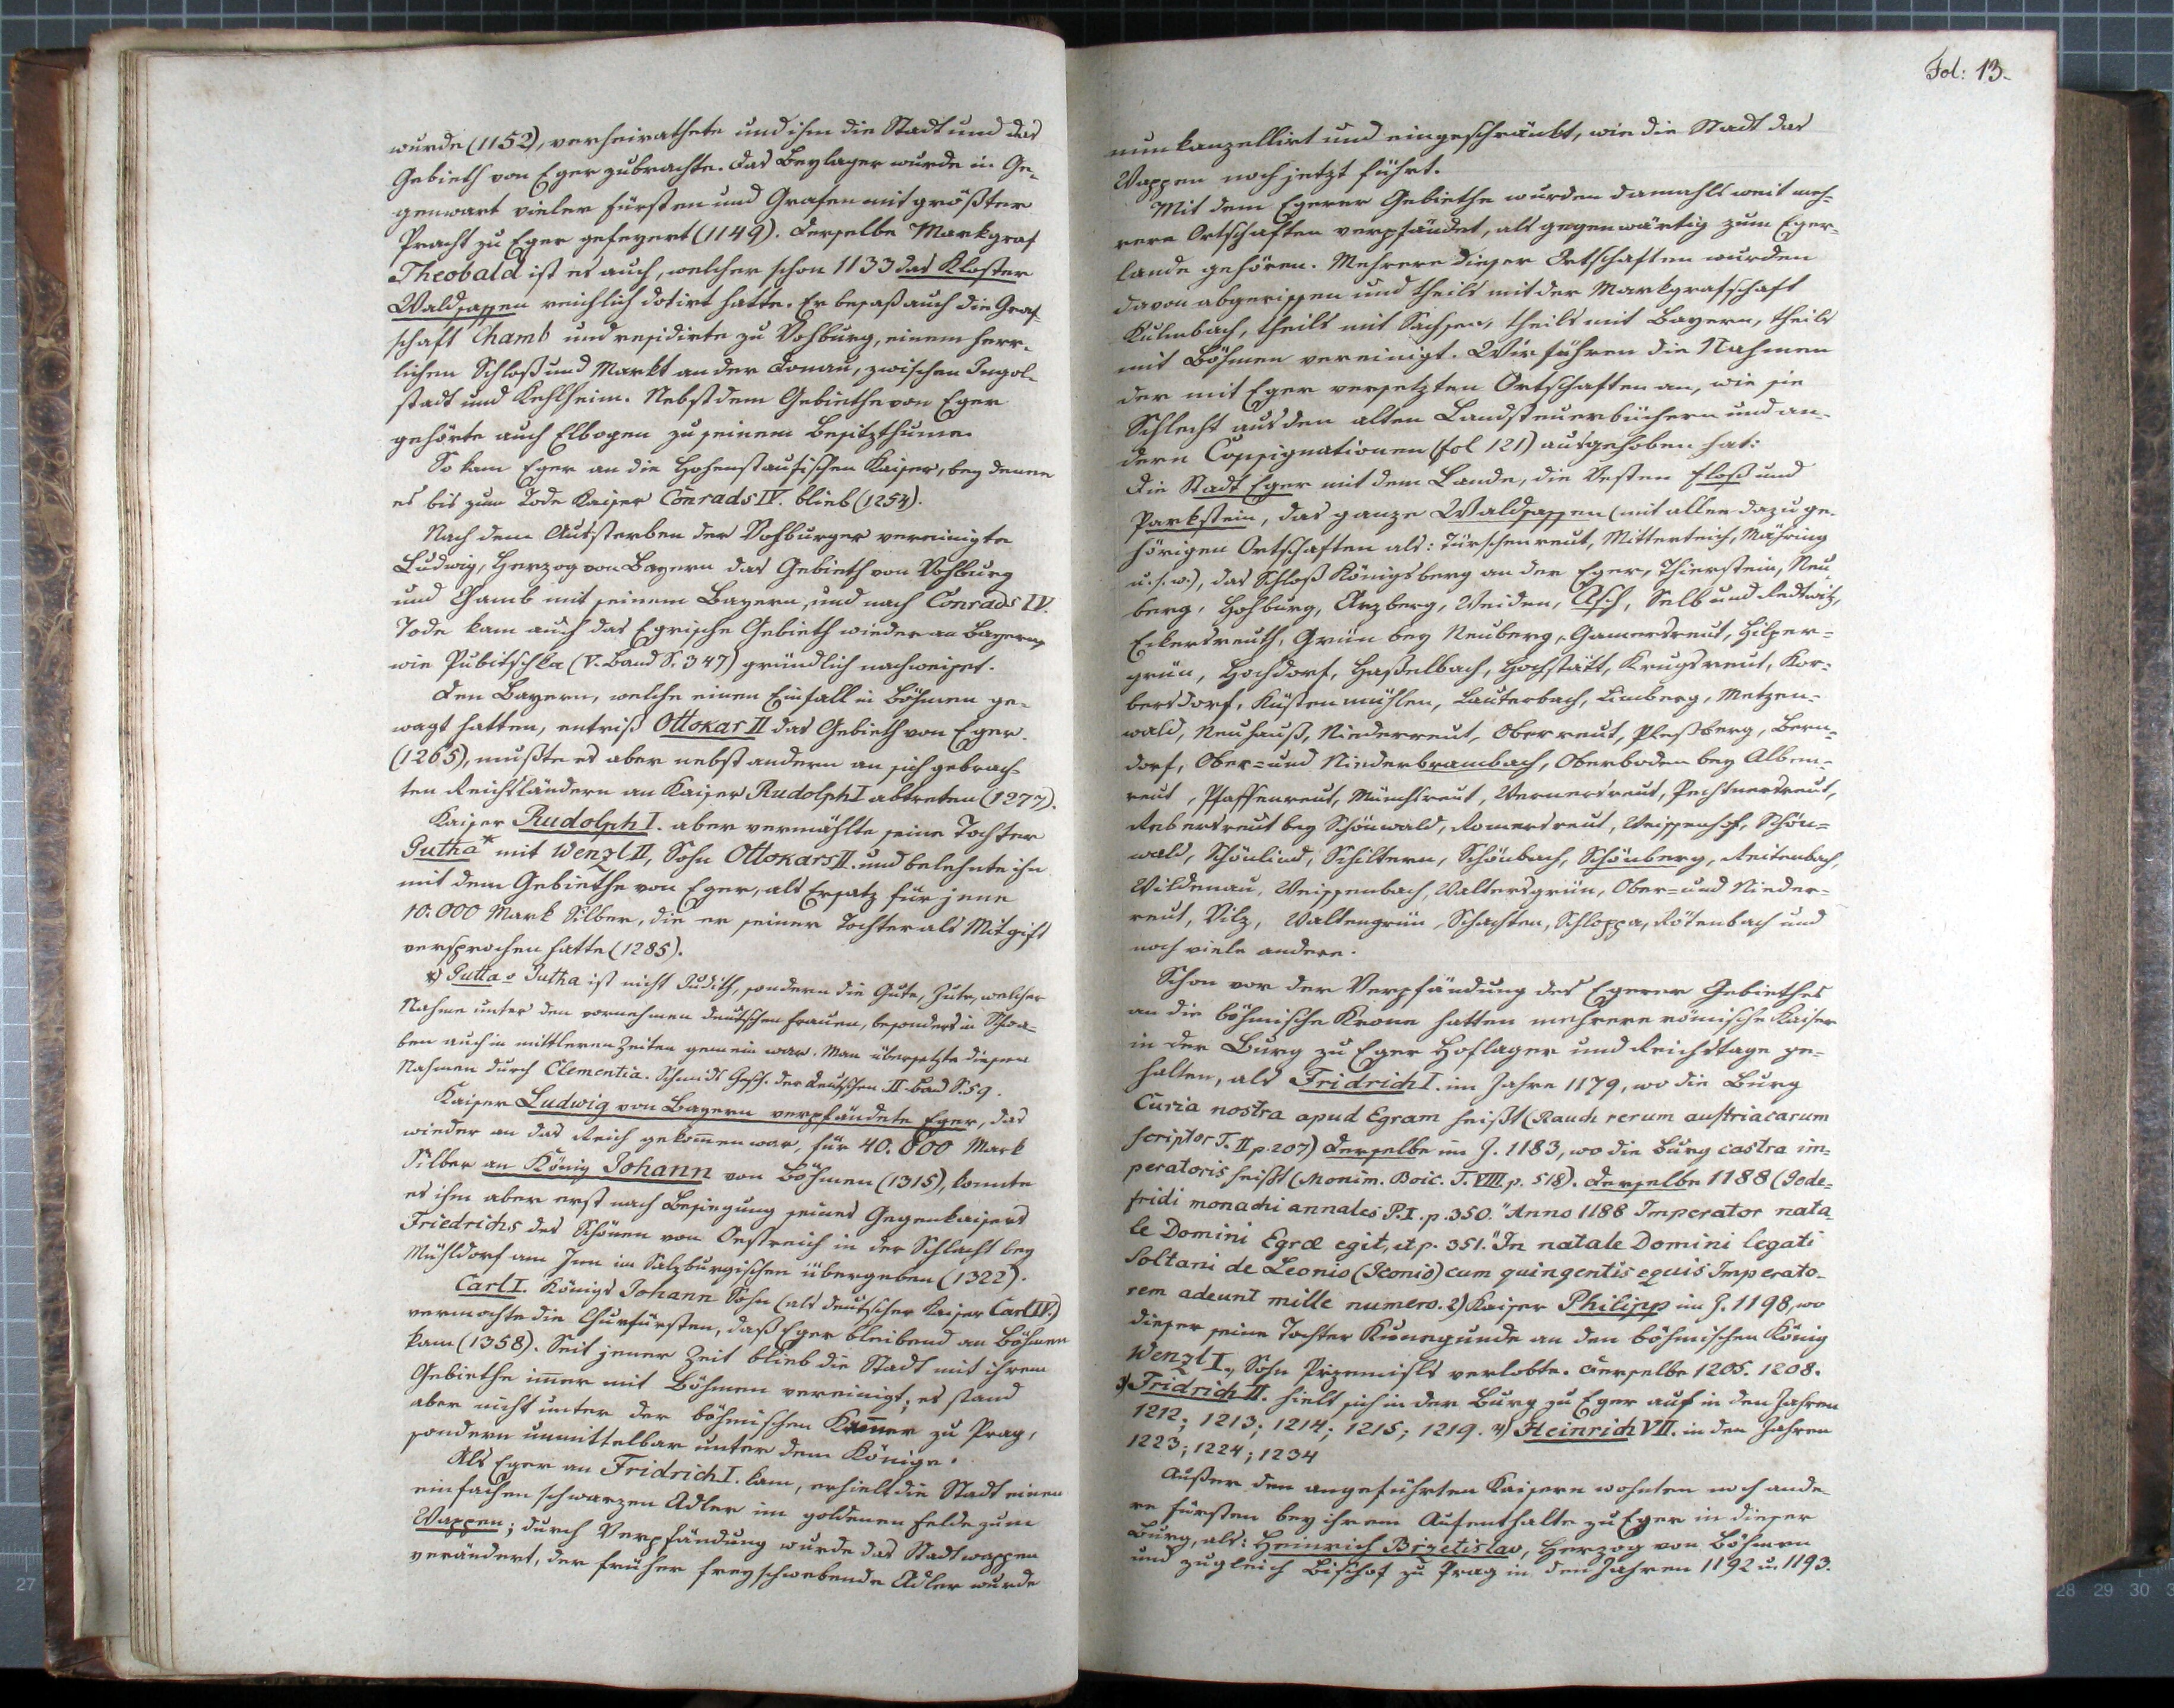 wurde (1152), verheirathete und ihm die Stadt und das
Gebieth von Eger zubrachte. Das Beylager wurde in Ge-
genwart vieler Fürsten und Grafen mit größter
Pracht zu Eger gefeyert (1149). Derselbe Markgraf
Theobald ist es auch, welcher schon 1133 das Kloster
Waldsassen reichlich dotirt hatte. Er besaß auch die Graf-
schaft Chamb und residirte zu Vohburg, einem herr-
lichen Schloß und Markt an der Donau, zwischen Ingol-
stadt und Kehlheim. Nebst dem Gebiethe von Eger
gehörte auch Elbogen zu seinem Besitzthume.
So kam Eger an die Hohenstaufischen Kaiser, bey denen
es bis zum Tode Kaiser Conrads IV. blieb (1254).
Nach dem Aussterben der Vohburger vereinigte
Ludwig, Herzog von Bayern das Gebieth von Vohburg
und Chamb mit seinem Bayern, und nach Conrads IV.
Tode kam auch das Egrische Gebieth wieder an Bayern,
wie Pubitschka (V. Band S. 347) gründlich nachweiset.
Den Bayern, welche einen Einfall in Böhmen ge-
wagt hatten, entriß Ottokar II das Gebieth von Eger
(1265), mußte es aber nebst andern an sich gebrach-
ten Reichsländern an Kaiser Rudolph I abtreten (1277).
Kaiser Rudolph I. aber vermählte seine Tochter
Gutha* mit Wenzl II, Sohn Ottokars II. und belehnte ihn
mit dem Gebiethe von Eger, als Ersatz für jene
10.000 Mark Silber, die er seiner Tochter als Mitgift
versprochen hatte (1285).
*) Gutta o Jutha ist nicht Judith, sondern die Gute, Jute, welcher
Nahme unter den vornehmen deutschen Frauen, besonders in Schwa-
ben auch in mittleren Zeiten gemein war. Man übersetzte diesen
Nahmen durch Clementia. Schmids Gesch. der Deutschen II. Band S. 59.
Kaiser Ludwig von Bayern verpfändete Eger, das
wieder an das Reich gekommen war, für 40.000 Mark
Silber an König Johann von Böhmen (1315), konnte
es ihm aber erst nach Besiegung seines Gegenkaisers
Friedrichs des Schönen von Oestreich in der Schlacht bey
Mühldorf am Inn im Salzburgischen übergeben (1322).
Carl I. Königs Johann Sohn (als deutscher Kaiser Carl IV.)
vermochte die Churfürsten, daß Eger bleibend an Böhmen
kam (1358). Seit jener Zeit blieb die Stadt mit ihrem
Gebiethe immer mit Böhmen vereinigt; es stand
aber nicht unter der böhmischen Kammer zu Prag,
sondern unmittelbar unter dem Könige.
Als Eger an Fridrich I. kam, erhielt die Stadt einen
einfachen schwarzen Adler im goldenen Felde zum
Wappen; durch Verpfändung wurde das Stadtwappen
verändert, der früher freyschwebende Adler wurde
Fol: 13.
nun kanzellirt und eingeschränkt, wie die Stadt das
Wappen noch jetzt führt.
Mit dem Egerer Gebiethe wurden damahls weit meh-
rere Ortschaften verpfändet, als gegenwärtig zum Eger-
lande gehören. Mehrere dieser Ortschaften wurden
davon abgerissen und theils mit der Markgrafschaft
Kulmbach, theils mit Sachsen, theils mit Bayern, theils
mit Böhmen vereinigt. Wir führen die Nahmen
der mit Eger versetzten Ortschaften an, wie sie
Schlecht aus den alten Landsteuerbüchern und an-
dern Consignationen (fol 121) ausgehoben hat:
Die Stadt Eger mit dem Lande, die Vesten Floß und
Parkstein, das ganze Waldsassen (mit allen dazu ge-
hörigen Ortschaften als: Türschenreut, Mitterteich, Mähring
u.s.w.), das Schloß Königsberg an der Eger, Thierstein, Neu-
berg, Hohburg, Arzberg, Weiden, Asch, Selb und Redtwitz,
Eckersreuth, Grün bey Neuberg, Gamersreut, Hilper-
grün, Hochdorf, Haßelbach, Hochstätt, Krugsreut, Kor-
bersdorf, Küstenmühlen, Lauterbach, Limberg, Metzen-
wald, Neuhauß, Niederreut, Oberreut, Pleßberg, Bern-
dorf, Ober= und Niederbrambach, Oberboden bey Alben-
reut, Pfaffenreut, Münchsreut, Wernersreut, Pechtnersreut,
Rebersreut bey Schönwald, Romersreut, Weissenhof, Schön-
wald, Schönlind, Schiltern, Schönbach, Schönberg, Reitenbach,
Wildenau, Weissenbach, Waltersgrün, Ober= und Nieder-
reut, Vilz, Waltengrün, Schachten, Schloppa, Rötenbach und
noch viele andere.
Schon vor der Verpfändung des Egerer Gebiethes
an die böhmische Krone hatten mehrere römische Kaiser
in der Burg zu Eger Hoflager und Reichstage ge-
halten, als Fridrich I. im Jahre 1179, wo die Burg
Curia nostra apud Egram heißt (Rauch rerum austriacarum
scriptor T. II p. 207) Derselbe im J. 1183, wo die Burg castra im-
peratoris heißt (Monim. Boic. T. VIII. p. 518). Derselbe 1188 (Gode-
fridi monachi annales P. I. p. 350. "Anno 1188 Imperator nata-
le Domini Egræ egit, et p. 351. "In natale Domini legati
Soltani de Leonio (Iconio) cum quingentis equis Imperato-
rem adeunt mille numero. 2) Kaiser Philipp im J. 1198, wo
dieser seine Tochter Kunegunde an den böhmischen König
Wenzl I., Sohn Przemisls verlobte. Derselbe 1205. 1208.
3) Fridrich II. hielt sich in der Burg zu Eger auf in den Jahren
1212; 1213; 1214; 1215; 1219. 4) Heinrich VII. in den Jahren
1223; 1224; 1234
Außer den angeführten Kaisern wohnten noch ande-
re Fürsten bey ihrem Aufenthalte zu Eger in dieser
Burg, als: Heinrich Brzetislav, Herzog von Böhmen
und zugleich Bischof zu Prag in den Jahren 1192 u. 1193.
27
28 29 30